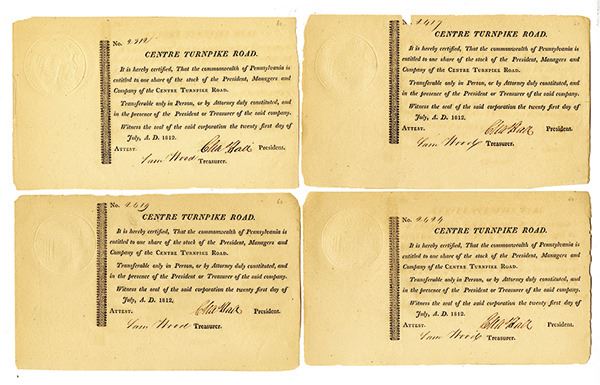 No. 2312
CENTRE TURNPIKE ROAD.
It is hereby certified, That the commonwealth of Pennsylvania is
entitled to one share of the stock of the President, Managers and
Company of the CENTRE TURNPIKE ROAD.
Transferable only in Person, or by Attorney duly constituted, and
in the presence of the President or Treasurer of the said company.
Witness the seal of the said corporation the twenty first day of
July, A. D. 1812.
ATTEST. President.
Sam Wood Treasurer.
2417
CENTRE TURNPIKE ROAD.
It is hereby certified, That the commonwealth of Pennsylvania is
entitled to one share of the stock of the President, Managers and
Company of the CENTRE TURNPIKE ROAD.
Transferable only in Person, or by Attorney duly constituted, and
in the presence of the President or Treasurer of the said company.
Witness the seal of the said corporation the twenty first day of
July, A. D. 1812.
ATTEST. President.
Sam Wood Treasurer.
No. 2419
CENTRE TURNPIKE ROAD.
It is hereby certified, That the commonwealth of Pennsylvania is
entitled to one share of the stock of the President, Managers and
Company of the CENTRE TURNPIKE ROAD.
Transferable only in Person, or by Attorney duly constituted, and
in the presence of the President or Treasurer of the said company.
Witness the seal of the said corporation the twenty first day of
July, A. D. 1812.
ATTEST. President.
Sam Wood Treasurer.
No. 2424
CENTRE TURNPIKE ROAD.
It is hereby certified, That the commonwealth of Pennsylvania is
entitled to one share of the stock of the President, Managers and
Company of the CENTRE TURNPIKE ROAD.
Transferable only in Person, or by Attorney duly constituted, and
in the presence of the President or Treasurer of the said company.
Witness the seal of the said corporation the twenty first day of
July, A. D. 1812.
ATTEST. President.
Sam Wood Treasurer.